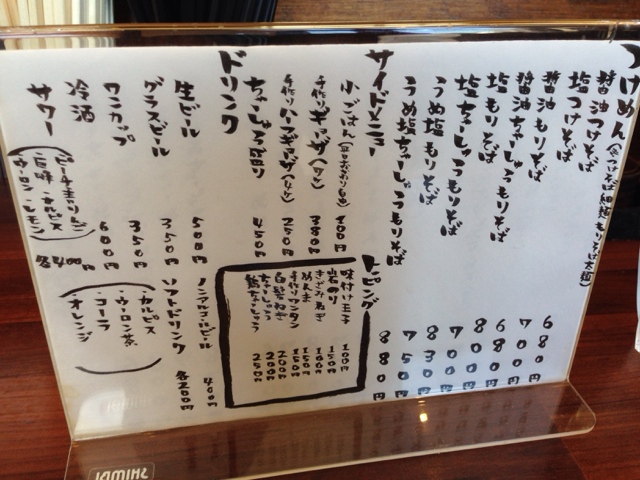 つけめん(つけそば細麺もりそば太麺)
醤油つけそば 680円
塩つけそば 700円
醤油もりそば 680円
醤油ちゃーしゅうもりそば
塩もりそば 700円
塩ちゃーしゅうもりそば 830円
うめ塩もりそば 750円
うめ塩ちゃーしゅうもりそば 880円
サイドメニュー
小ごはん 100円
手作りギョーザ 380円
手作りハーフギョーザ 250円
ちゃーしゅう盛り 450円
トッピング
味付け玉子 100円
岩のり 150円
きざみねぎ 100円
めんま 150円
手作りワンタン 200円
白髪ねぎ 200円
ちゃーしゅう 250円
ドリンク
生ビール 500円
グラスビール 350円
ワンカップ 350円
冷酒 600円
サワー 各400円
(ピーチ・オレンジ
巨峰・カルピス
ウーロン・レモン)
ノンアルコールビール 400円
ソフトドリンク 各200円
(カルピス
・ウーロン茶
・コーラ
・オレンジ)